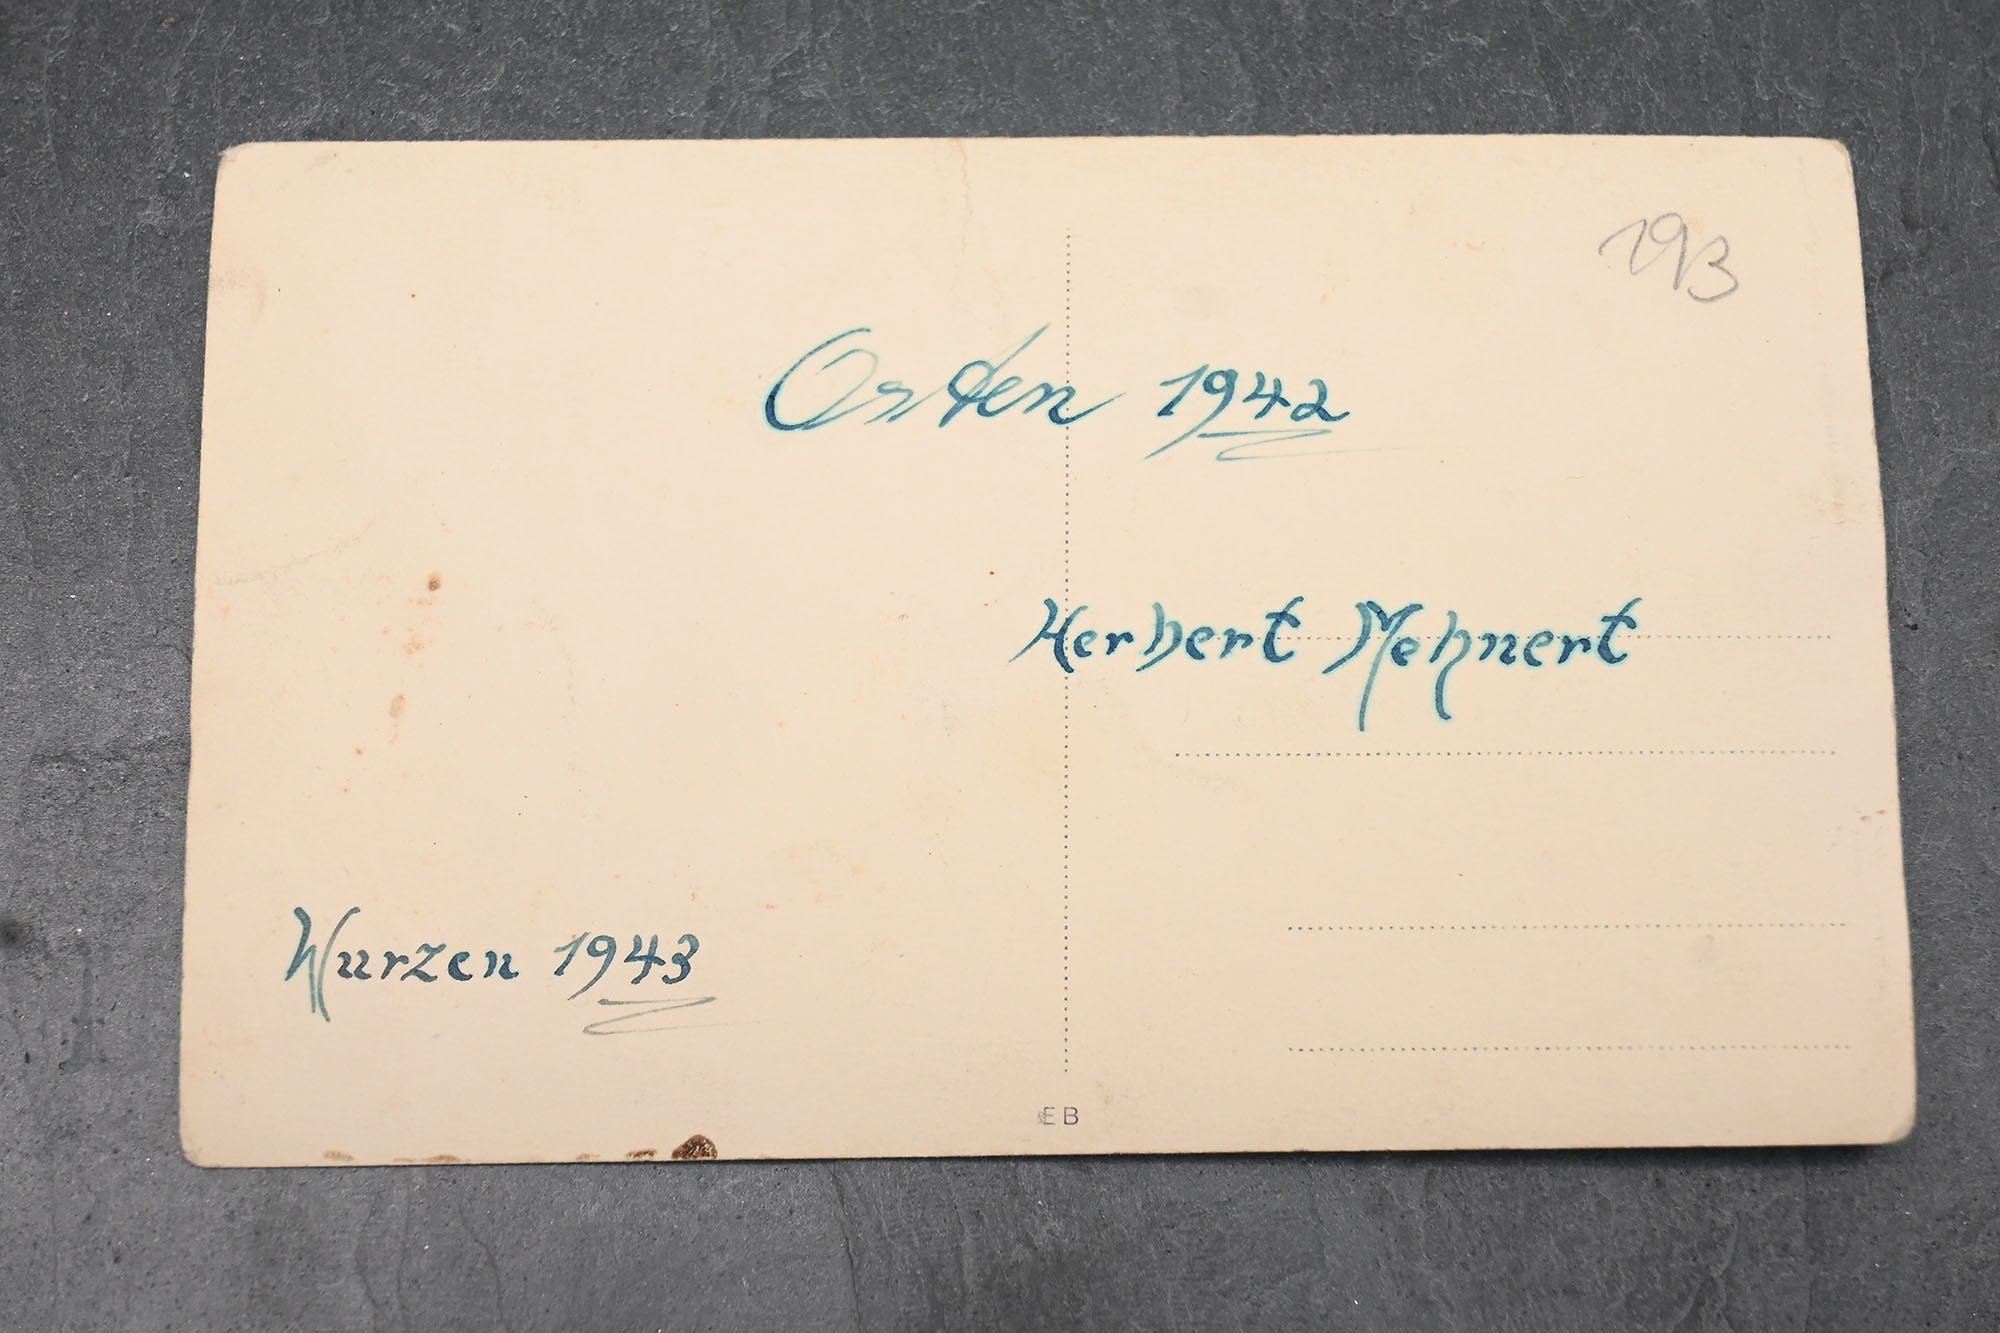 193
Osten 1942
Herbert Mehnert
Wurzen 1943
EB